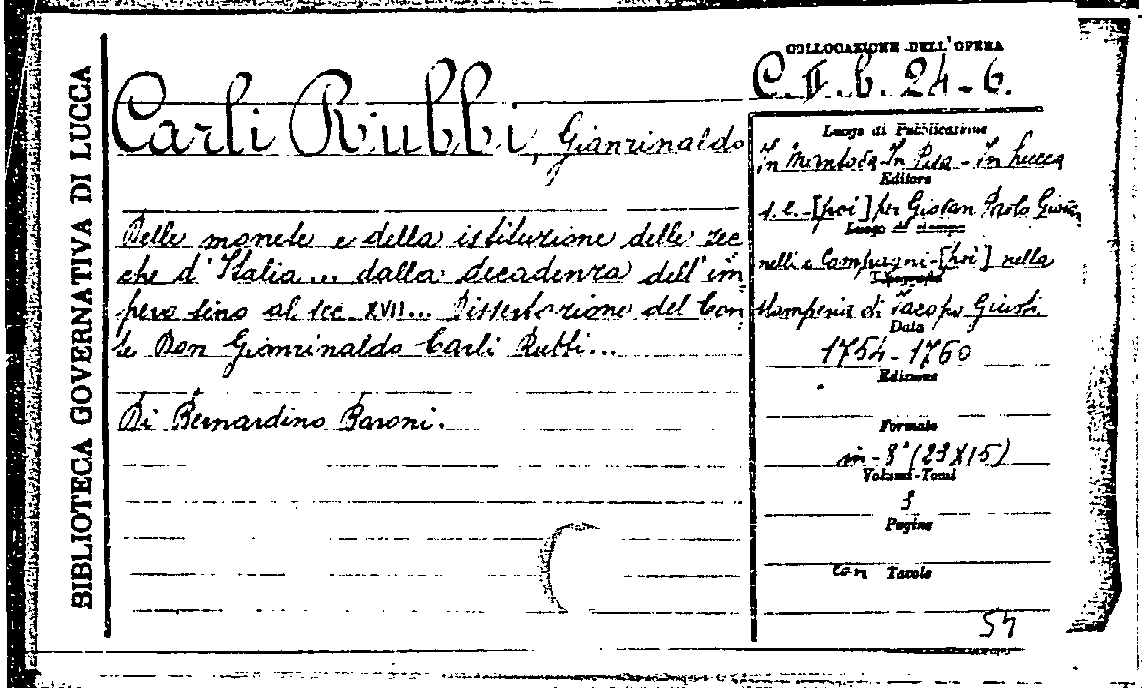 BIBLIOTECA GOVERNATIVA DI LUCCA
COLLOCAZIONE DELL'OPERA
C. II. b. 24-6.
Carli Rubbi, Gianrinaldo
Delle monete e della istituzione delle zec
che d'Italia... dalla decadenza dell'im
pero fino al sec. XVII... Dissertazione del Con
te Don Gianrinaldo Carli Rubbi...
Di Bernardino Baroni.
Luogo di Pubblicazione
In Mantova In Pisa - In Lucca
Editore
s.e.-[poi] per Giovan Paolo Giovan
Luogo di stampa
nelli e Compagni-[poi] nella
Tipografia
stamperia di Jacopo Giusti
Data
1754-1760
Edizione
Formato
in-8° (23X15)
Volumi-Tomi
Pagine
con Tavole